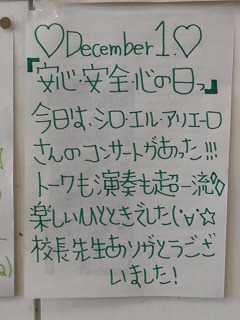 ♡December 1.♡
『安心・安全・心の日っ』
今日は、シロ・エル・アリエーロ
さんのコンサートがあった!!!
トークも演奏も超一流◇
楽しいひとときでした(・∀・)☆
校長先生ありがとうござ
いました!